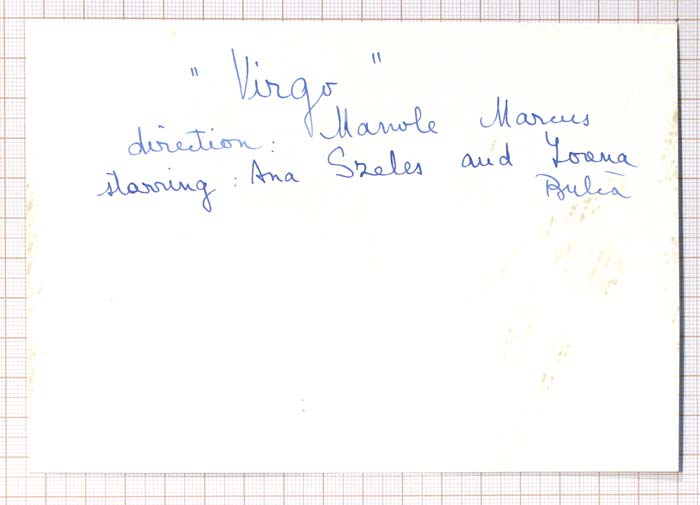 " Virgo "
direction: Manole Marcus
starring: Ana Szeles and Ioana
Bulcă